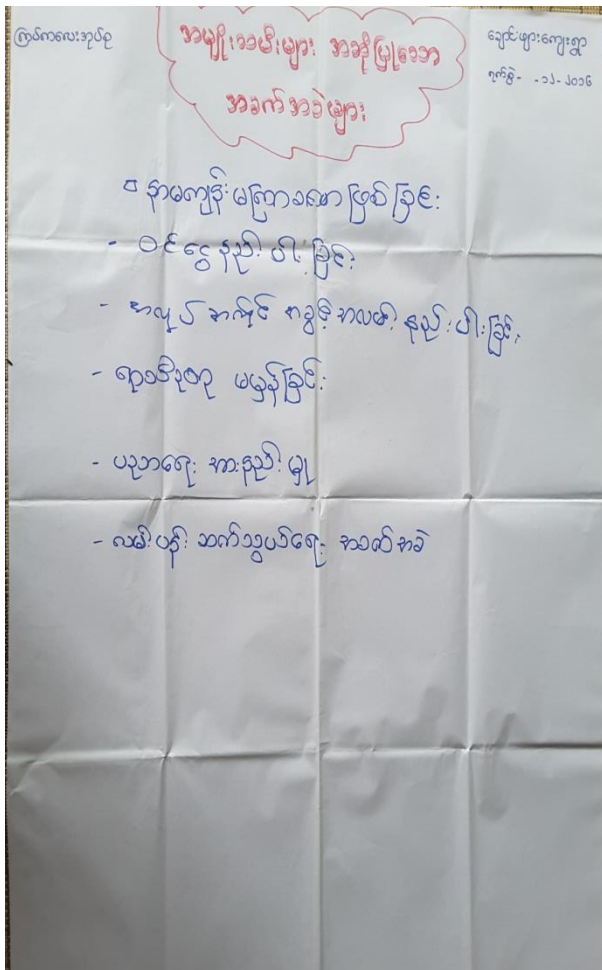 ကြပ်ကလေးအုပ်စု
အမျိုးသမီးများ အဆိုပြုသော
အခက်အခဲများ
ချောင်းဖျားကျေးရွာ
ရက်စွဲ- -၁၂-၂၀၁၆
နာမကျန်း မကြာခဏ ဖြစ်ခြင်း
- ဝင်ငွေ နည်းပါးခြင်း
- အလုပ် အကိုင် အခွင့် အလမ်း နည်းပါးခြင်း
- ရာသီဥတု မမှန်ခြင်း
- ပညာရေး အားနည်းမှု
- လမ်းပန်း ဆက်သွယ်ရေး အခက်အခဲ